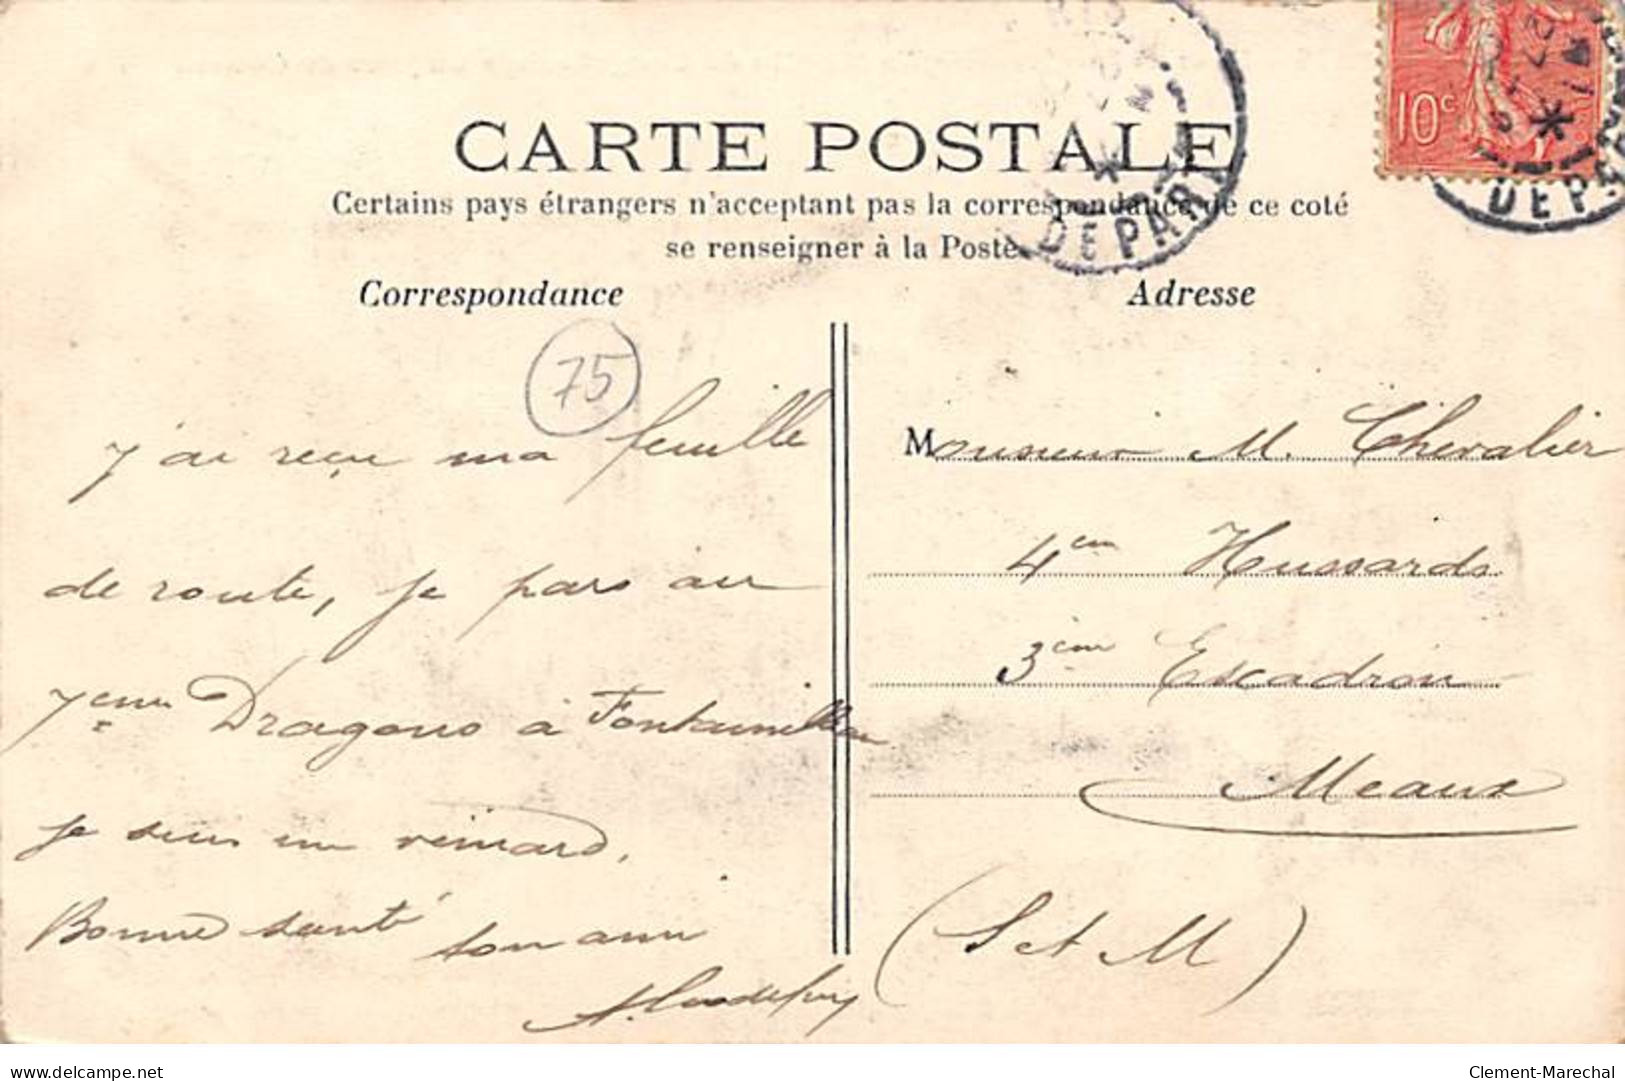 CARTE POSTALE
Certains pays étrangers n'acceptant pas la correspondance de ce coté
se renseigner à la Poste
Correspondance
Adresse
10c
DEPART
DEPART
75
J'ai reçu ma feuille
de route, je pars au
7eme Dragons à Fontainebleau
je suis un veinard,
Bonne santé ton ami
Monsieur M. Chevalier
4em Hussards
3ème Escadron
Meaux
(S et M)
delcampe.net
Clement-Marechal